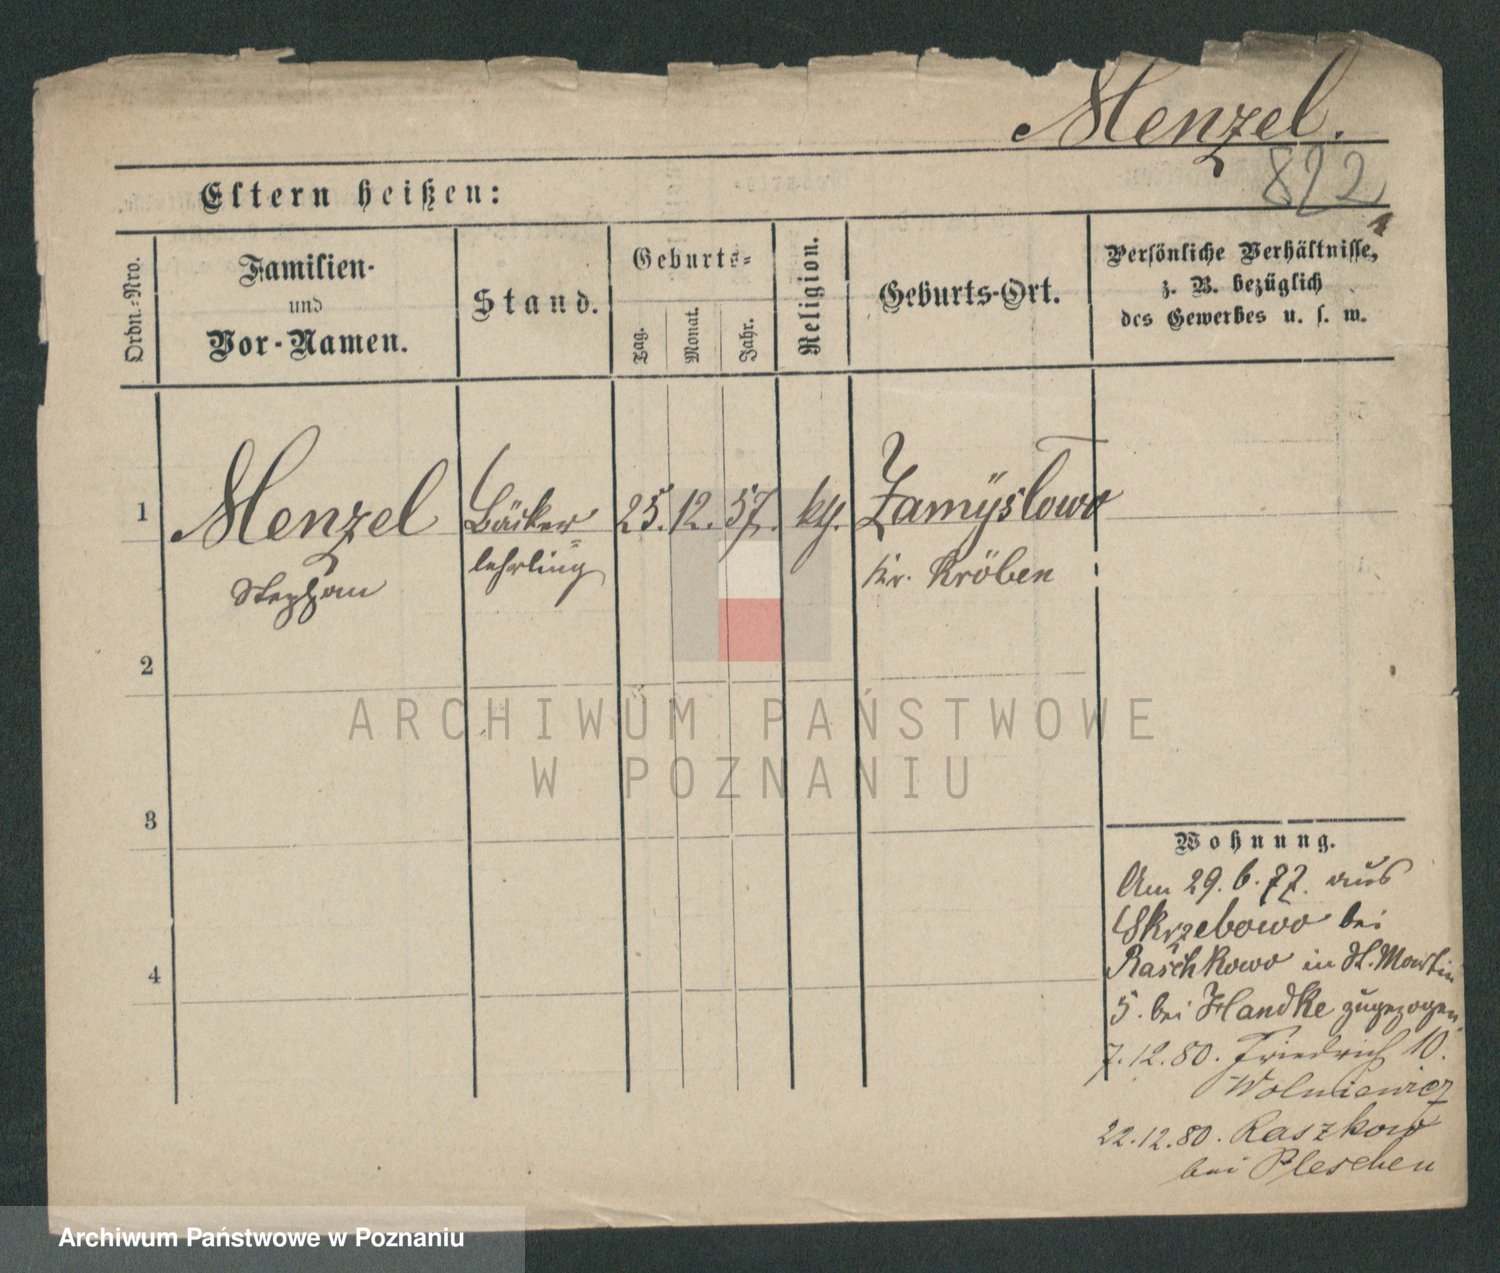 Menzel.
822
Eltern heißen:
Ordn.-Nro.
Familien-
und
Vor-Namen.
Stand.
Geburts-
Tag.
Monat.
Jahr.
Religion.
Geburts-Ort.
Persönliche Verhältnisse,
z. B. bezüglich
des Gewerbes u. s. w.
1 Menzel Bäcker= 25. 12. 57. kth. Zamysłowo
Stephan lehrling Kr. Kröben
2
3
4
Wohnung.
Am 29. 6. 77. aus
Skrzebowo bei
Raschkowo in St. Martin
5. bei Handke zugezogen.
7.12.80. Friedrich 10.
Wolniewicz
22.12.80. Raszkow
bei Pleschen
ARCHIWUM PAŃSTWOWE
W POZNANIU
Archiwum Państwowe w Poznaniu